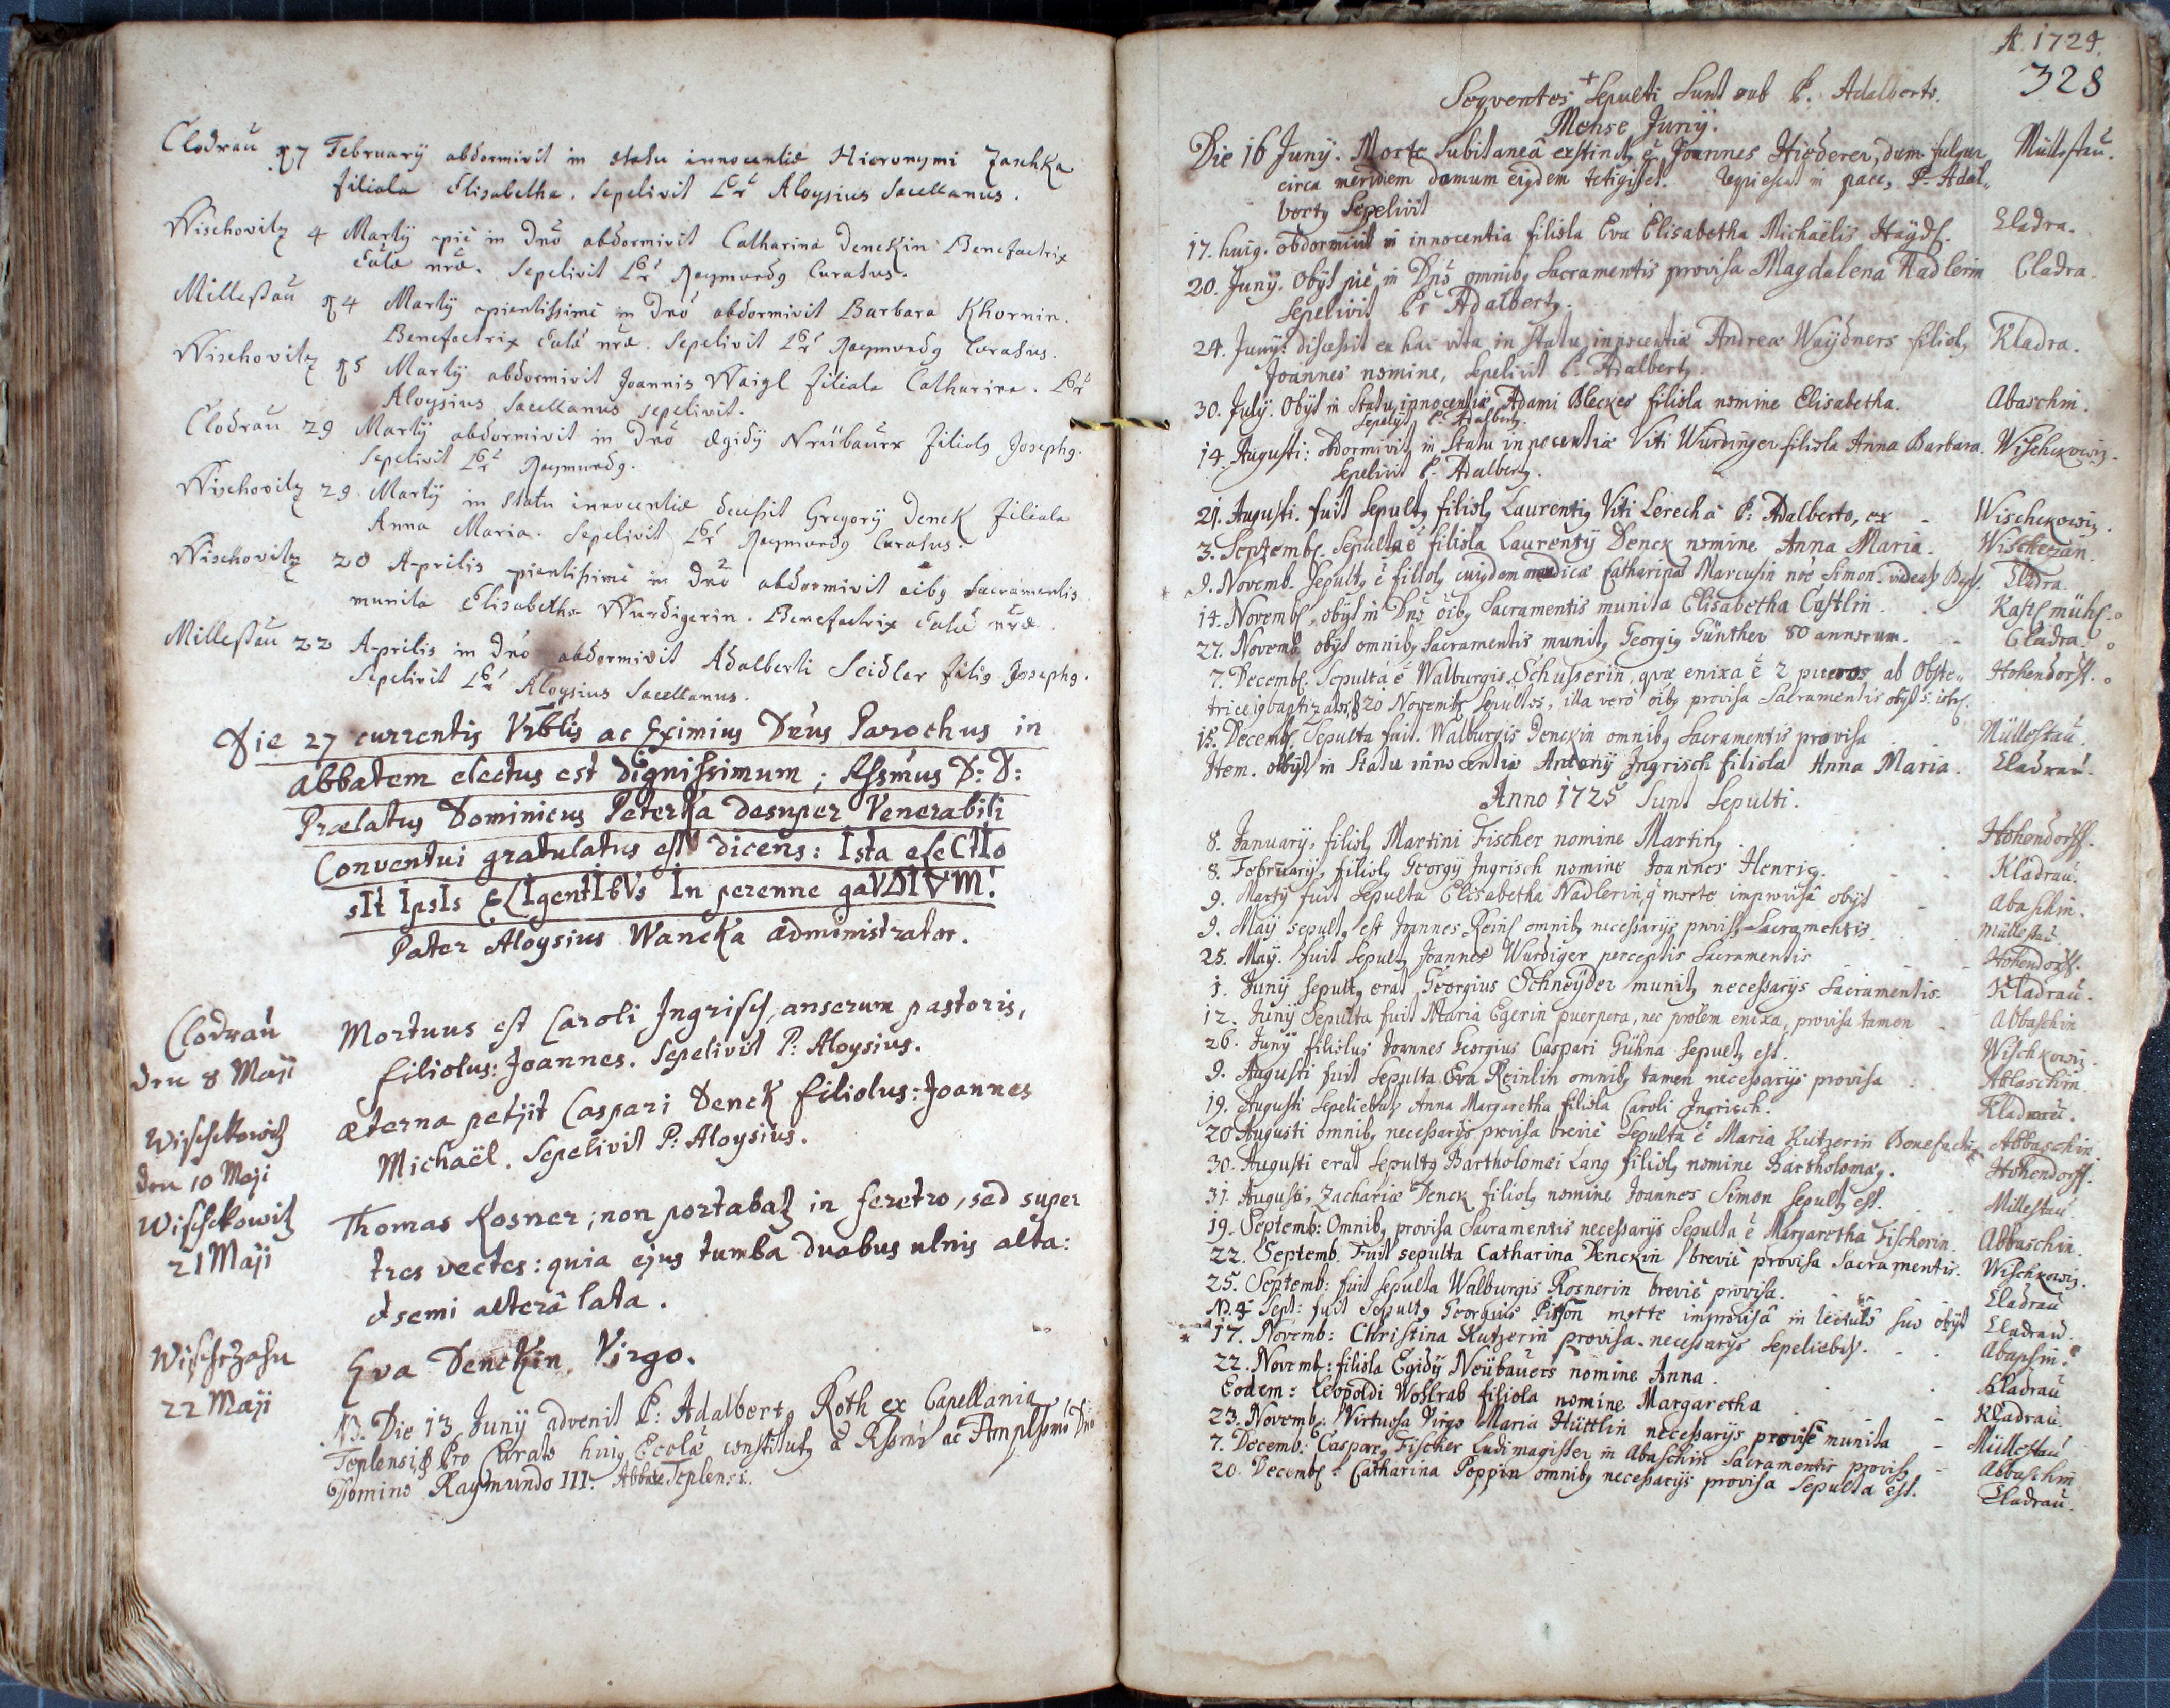 Clodrau 27 February abdormivit in statu innocentiæ Hieronymi Zaschka
filiola Elisabetha. Sepelivit Aloysius Sacellanus.
Wischovitz 4 Martÿ pie in Dnō abdormivit Catharina Denckin Benefactrix
nræ. Sepelivit Raymundg Curatus.
Milleßau 14 Martÿ pientissime in Dnō abdormivit Barbara Khornin.
Benefactrix nræ. Sepelivit Raymundg Curatus.
Wischovitz 15 Martÿ abdormivit Joannis Waigl filiola Catharina.
Aloysius Sacellanus sepelivit.
Clodrau 29 Martÿ abdormivit in Dnō Ægidÿ Neübauer filiolg Josephg.
Sepelivit Raymundg.
Wischovitz 29 Martÿ in statu innocentiæ decessit Gregorÿ Denck filiola
Anna Maria. Sepelivit Raymundg Curatus.
Wischovitz 20 Aprilis pientissime in Dnō abdormivit oibg Sacramentis
munita Elisabetha Wurdigerin. Benefactrix nræ.
Milleßau 22 Aprilis in Dnō abdormivit Adalberti Seidler filig Josephg.
Sepelivit Aloysius Sacellanus.
Die 27 currentis Vrblis ac Eximius Dnus Parochus in
abbatem electus est dignissimum; Assmus D: D:
Prælatus Dominicus Peterka desuper Venerabili
Conventui gratulatus est dicens: Ista eLeCtIo
sIt IpsIs ELIgentIbVs In perenne gaVDIVM!
Pater Aloysius Wancka administrator.
Clodrau Mortuus est Caroli Ingrisch, anserum pastoris,
den 8 Maji filiolus: Joannes. Sepelivit P: Aloysius.
Wischkowitz æterna petijt Caspari Denck filiolus: Joannes
den 10 Maji Michaël. Sepelivit P: Aloysius.
Wischkowitz Thomas Rosner; non portabat in feretro, sed super
21 Maji tres vectes: quia ejus tumba duabus ulnis alta:
et semi alterâ lata.
Wischezahn Eva Denckin Virgo.
22 Maji
NB. Die 13 Junÿ advenit P: Adalbertg Roth ex Capellania
Teplensi, & Pro Curato huig Ecclæ constitutg à Rssmo ac Amplssmo Dno
Domino Raymundo III. Abbate Teplensi.
A. 1724.
328
Seqventes Sepulti sunt sub P. Adalberto.
Mense Junÿ.
Die 16 Junÿ. Morte subitaneâ exstinctg ē Joannes Hiederer, dum fulgur Müllestau.
circa meridiem domum eigdem tetigisset. Reqviescat in pace, P. Adal-
bertg Sepelivit
17. huig. obdormivit in innocentia filiola Eva Elisabetha Michaëlis Haÿdl. Cladra.
20. Junÿ. Obÿt piè in Dnō omnibg Sacramentis provisa Magdalena Nadlerin Cladra.
Sepelivit Pr Adalbertg.
24. Junÿ: discessit ex hac vita in statu innocentiæ Andreæ Waÿdners filiolg Kladra.
Joannes nomine, Sepelivit P. Adalbertg.
30. July. Obÿt in Statu innocentiæ Adami Bleckes filiola nomine Elisabetha. Abaschin.
Sepelivit P. Adalbertg.
14. Augusti: obdormivit in Statu innocentiæ Viti Würdinger filiola Anna Barbara. Wischckowiz.
Sepelivit P. Adalbertg.
21. Augusti. fuit Sepultg filiolg Laurentig Viti Lerech à P: Adalberto, ex - Wischckowiz.
3. Septemb. Sepulta ē filiola Laurentÿ Denck nomine Anna Maria. Wischezan.
9. Novemb. Sepultg ē filiolg cuigdem Catharina Marcusin nōe Simon. Cladra.
14. Novemb. obÿt in Dnō oibg Sacramentis munita Elisabetha Castlin. Kastlmühl.
27. Novemb. obÿt omnibg Sacramentis munitg Georgig Günther 80 annorum. - Cladra.
7. Decemb. Sepulta ē Walburgis Schusserin, qvæ enixa ē 2 pueros ab Obste- Hohendorff.
trice baptizatos, & 20 Novemb Sepultos, illa vero oibg provisa Sacramentis obÿt
15. Decemb. Sepulta fuit Walburgis Denckin omnibg Sacramentis provisa Müllestau.
Item. obÿt in Statu innocentiæ Antonÿ Ingrisch filiola Anna Maria. Cladrau.
Anno 1725 Sunt Sepulti.
8. Januarÿ, filiolg Martini Fischer nomine Marting. Hohendorff.
8. Februarÿ, filiolg Georgÿ Ingrisch nomine Joannes Henrig. Kladrau.
9. Martÿ fuit Sepulta Elisabetha Nadlerin, q̄ morte improvisâ obÿt - Abaschin.
9. May sepultg est Joannes Reinl omnibg necessarÿs provisg Sacramentis. Müllestau
25. May. fuit Sepultg Joannes Würdiger perceptis Sacramentis - Hohendorff.
1. Junÿ sepultg erat Georgius Schneÿder munitg necessarÿs Sacramentis. Kladrau.
12. Junÿ Sepulta fuit Maria Egerin puerpera, nec prolem enixa, provisa tamen - Abbaschin
26. Junÿ filiolus Joannes Georgius Caspari Gühna Sepultg est. Wischkowiz
9. Augusti fuit Sepulta Eva Reinlin omnibg tamen necessarÿs provisa Abbaschin
19. Augusti Sepeliebatg Anna Margaretha filiola Caroli Ingrisch. Kladrau.
20 Augusti omnibg necessarÿs provisa brevie Sepulta ē Maria Kutzerin Benefactrix Abbaschin
30. Augusti erat Sepultg Bartholomæi Lang filiolg nomine Bartholomæg. Hohendorff.
31. Augusti, Zachariæ Denck filiolg nomine Joannes Simon Sepultg est. Millestau
19. Septemb: Omnibg provisa Sacramentis necessarÿs Sepulta ē Margaretha Fischerin. Abbaschin.
22. Septemb. Fuit sepulta Catharina Denckin brevie provisa Sacramentis. Wischkowiz.
25. Septemb: fuit Sepulta Walburgis Rosnerin brevie provisa. Cladrau
N. 4 Sept: fuit Sepultg Georgius morte improvisâ in lectulo suo obÿt Cladrau.
* 17. Novemb: Christina Kutzerin provisa necessarÿs Sepeliebat. Abaschin.
22. Novemb: filiola Egidÿ Neübauers nomine Anna. Kladrau
Eodem: Leopoldi Wohlrab filiola nomine Margaretha Kladrau.
23. Novemb: Virtuosa Virgo Maria Hüttlin necessarÿs provisè munita - Müllestau
7. Decemb: Casparg Fischer Ludimagister in Abaschin Sacramentis provisg - Abbaschin
20. Decemb: Catharina Poppin omnibg necessarÿs provisa Sepulta est. Cladrau.